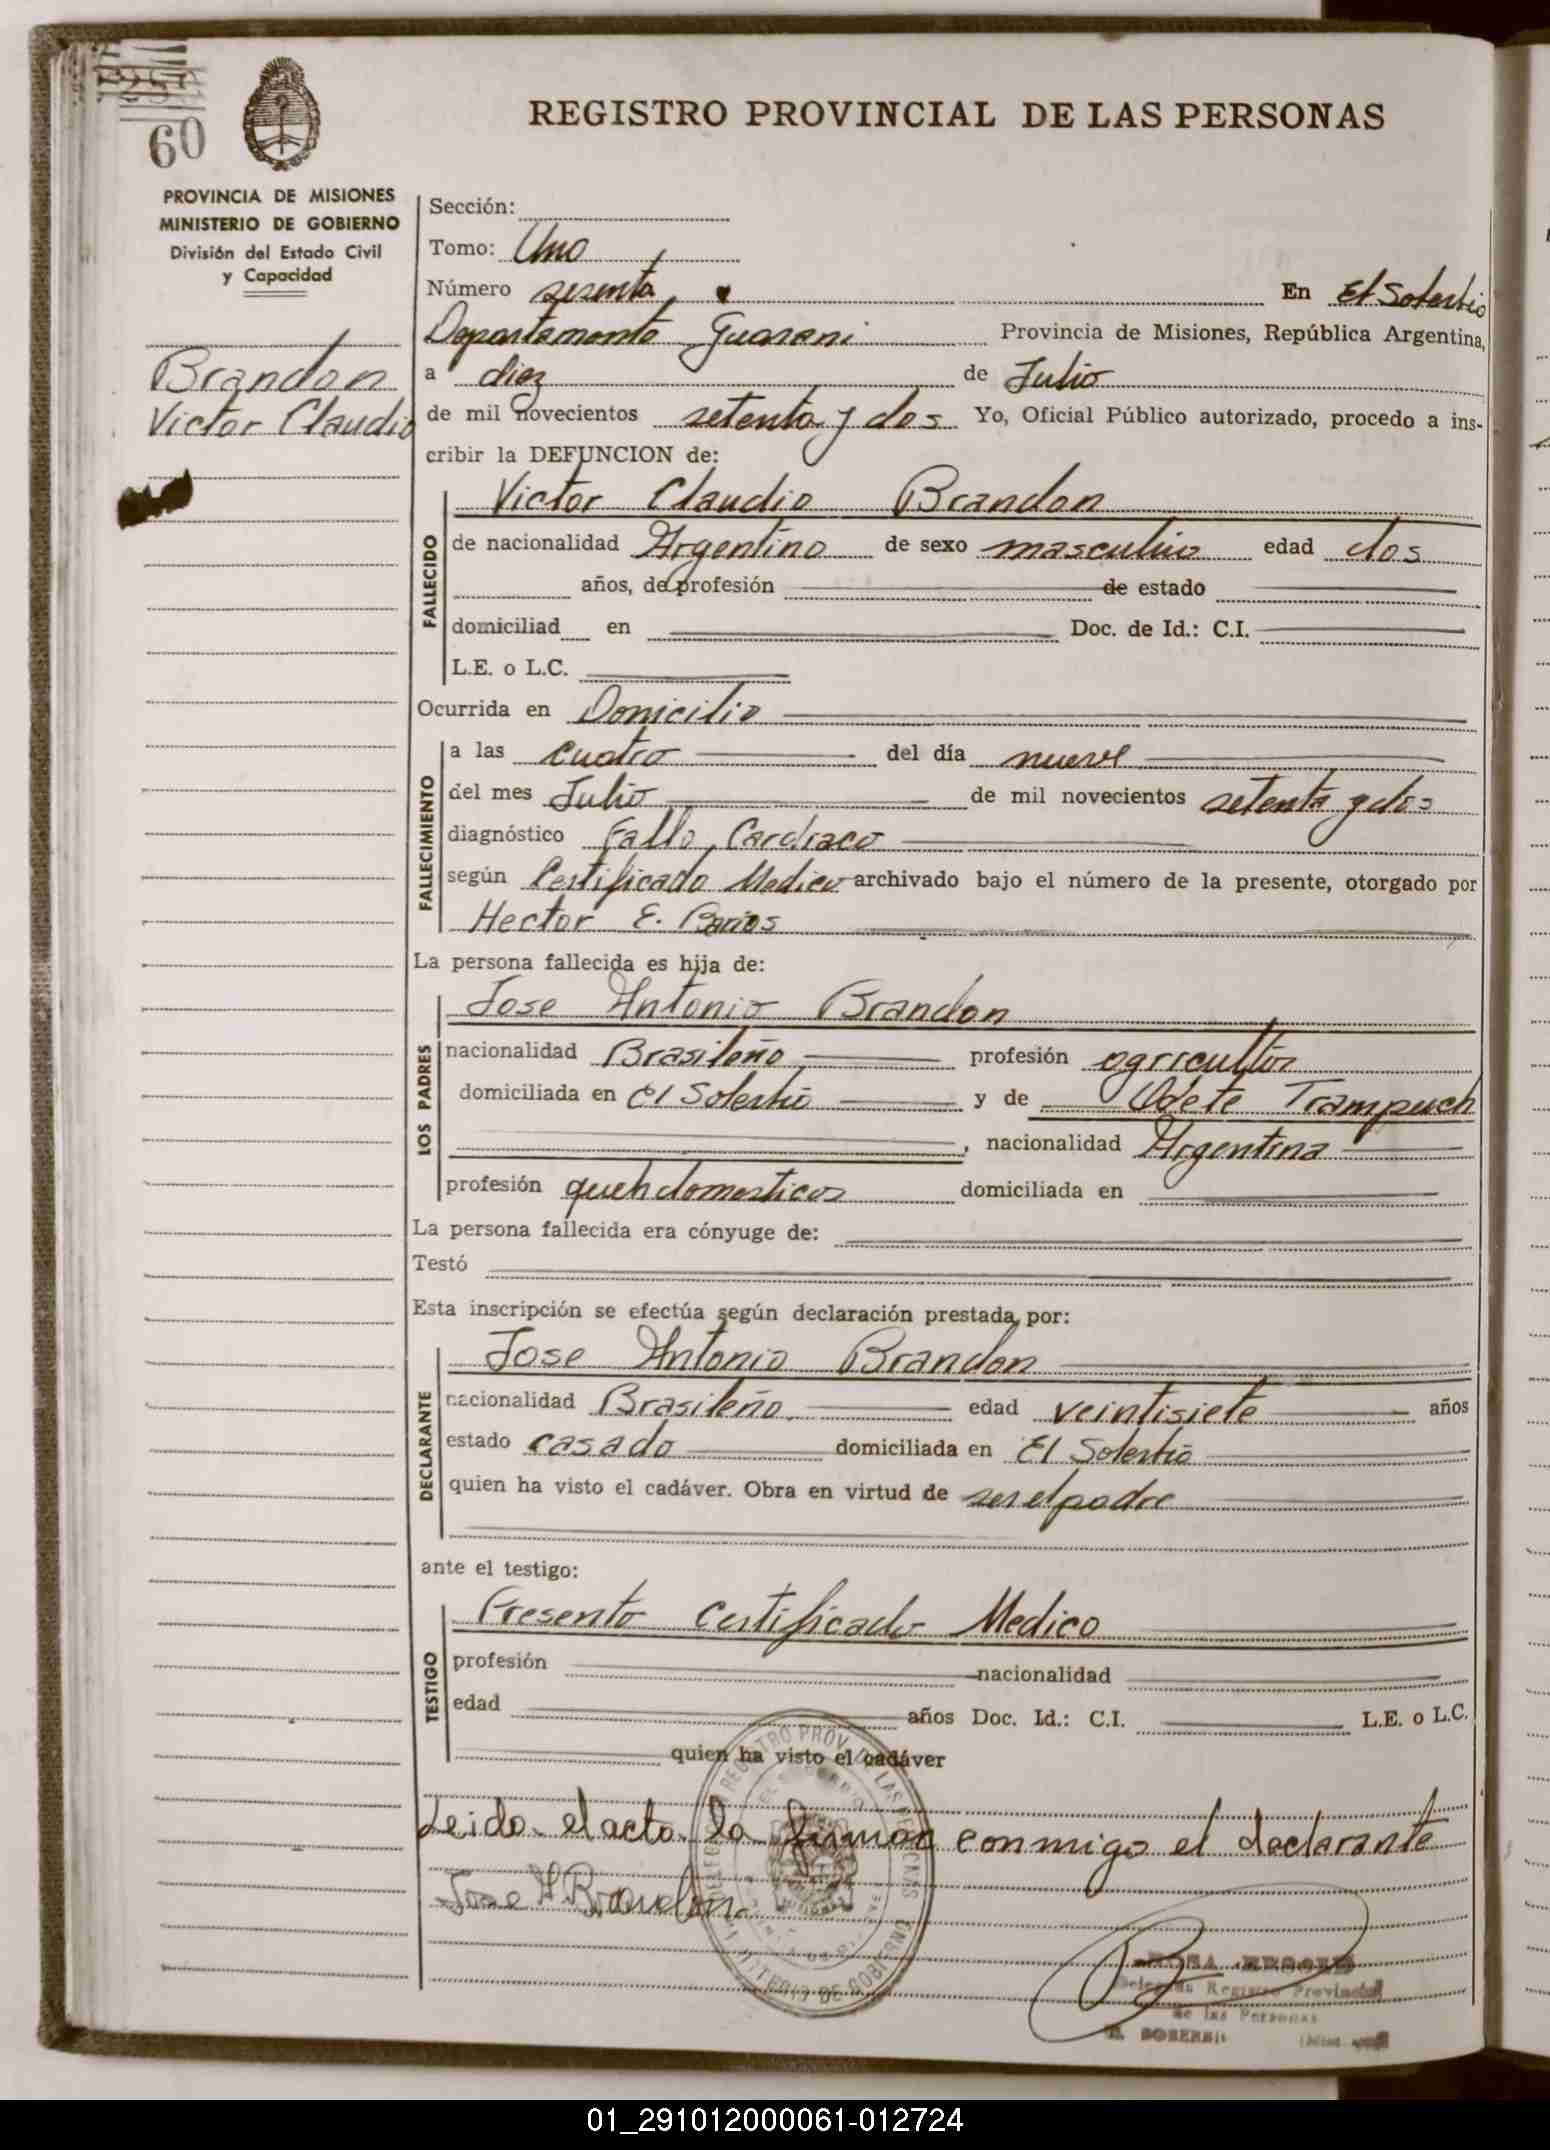 REGISTRO PROVINCIAL DE LAS PERSONAS
60
PROVINCIA DE MISIONES
MINISTERIO DE GOBIERNO
División del Estado Civil
y Capacidad
Brandon
Victor Claudio
Sección:
Tomo: Uno
Número sesenta En El Soberbio
Departamento Guarani Provincia de Misiones, República Argentina,
a diez de Julio
de mil novecientos setenta y dos Yo, Oficial Público autorizado, procedo a ins-
cribir la DEFUNCION de:
FALLECIDO
Victor Claudio Brandon
de nacionalidad Argentino de sexo masculino edad dos
años, de profesión de estado
domiciliad en Doc. de Id.: C.I.
L.E. o L.C.
Ocurrida en Domicilio
FALLECIMIENTO
a las cuatro del día nueve
del mes Julio de mil novecientos setenta y dos
diagnóstico Fallo Cardiaco
según Certificado Medico archivado bajo el número de la presente, otorgado por
Hector E. Barios
La persona fallecida es hija de:
LOS PADRES
Jose Antonio Brandon
nacionalidad Brasileño profesión agricultor
domiciliada en El Soberbio y de Odete Trampuch
, nacionalidad Argentina
profesión queh domesticos domiciliada en
La persona fallecida era cónyuge de:
Testó
Esta inscripción se efectúa según declaración prestada por:
DECLARANTE
Jose Antonio Brandon
nacionalidad Brasileño edad veintisiete años
estado casado domiciliada en El Soberbio
quien ha visto el cadáver. Obra en virtud de ser el padre
ante el testigo:
TESTIGO
Presento Certificado Medico
profesión nacionalidad
edad años Doc. Id.: C.I. L.E. o L.C.
quien ha visto el cadáver
Leido el acto la firman conmigo el declarante
Jose A. Brandon
Registro Provincial
de las Personas
01_291012000061-012724